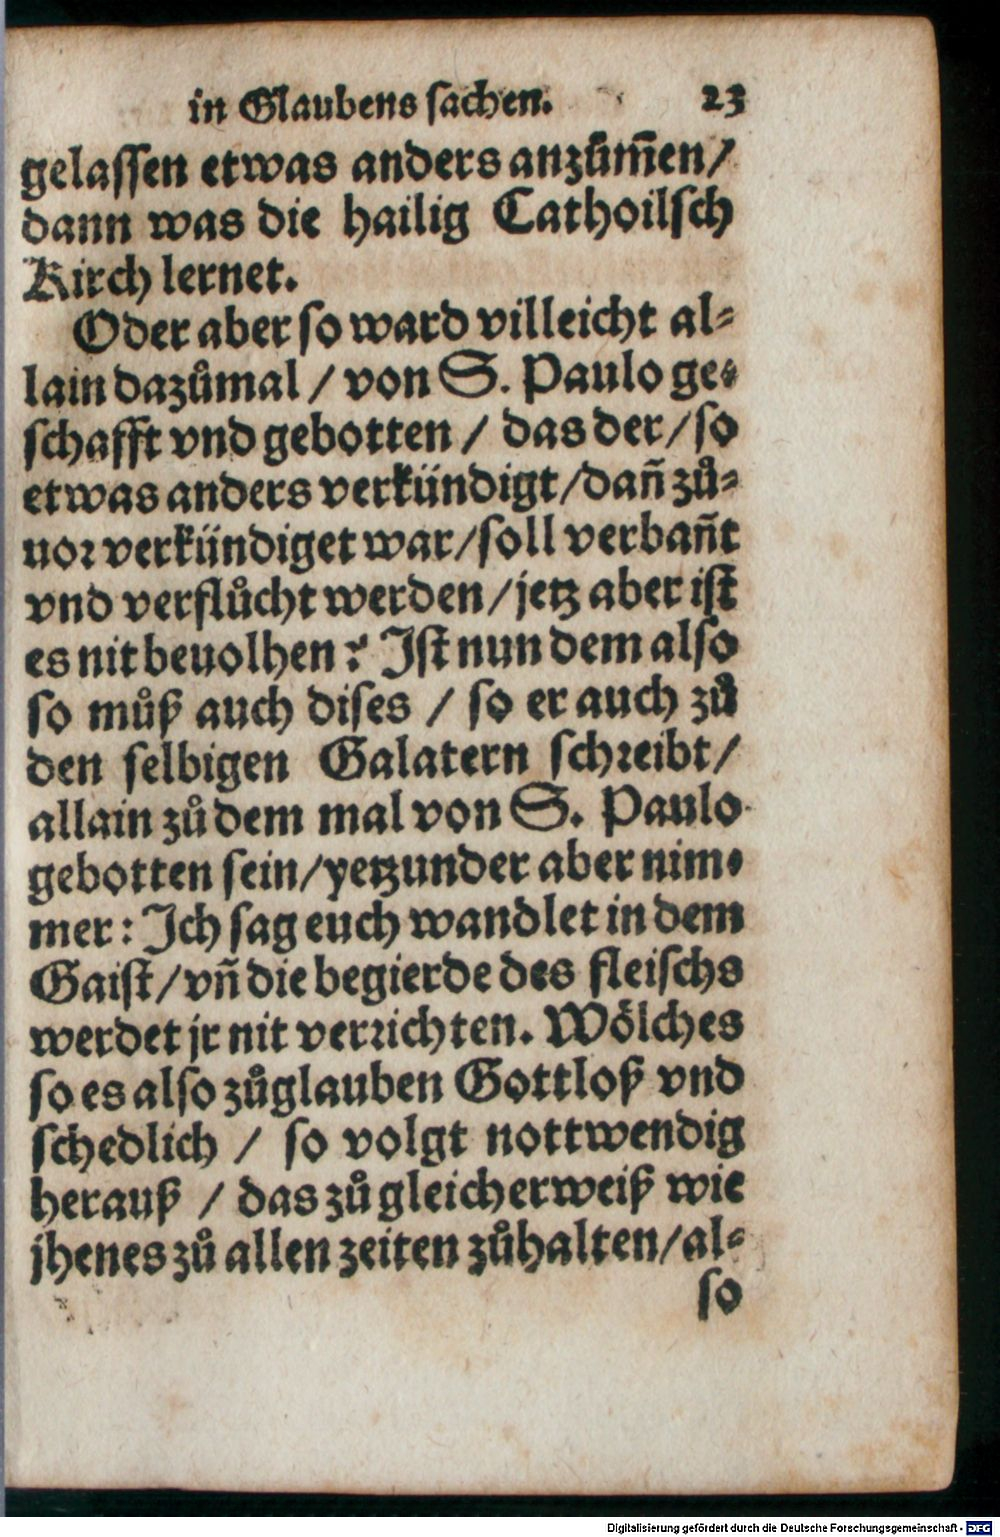 in Glaubens sachen. 23
gelassen etwas anders anzům̃en/
dann was die hailig Cathoilsch
Kirch lernet.
Oder aber so ward villeicht al⸗
lain dazůmal / von S. Paulo ge⸗
schafft vnd gebotten / das der/ so
etwas anders verkündigt/dañ zů⸗
uor verkündiget war/soll verbañt
vnd verflůcht werden/jetz aber ist
es nit beuolhen? Ist nun dem also
so můß auch dises / so er auch zů
den selbigen Galatern schreibt/
allain zů dem mal von S. Paulo
gebotten sein/yetzunder aber nim⸗
mer: Ich sag euch wandlet in dem
Gaist/vñ die begierde des fleischs
werdet jr nit verrichten. Wölches
so es also zůglauben Gottloß vnd
schedlich / so volgt nottwendig
herauß / das zů gleicherweiß wie
jhenes zů allen zeiten zůhalten/al⸗
so
Digitalisierung gefördert durch die Deutsche Forschungsgemeinschaft - DFG